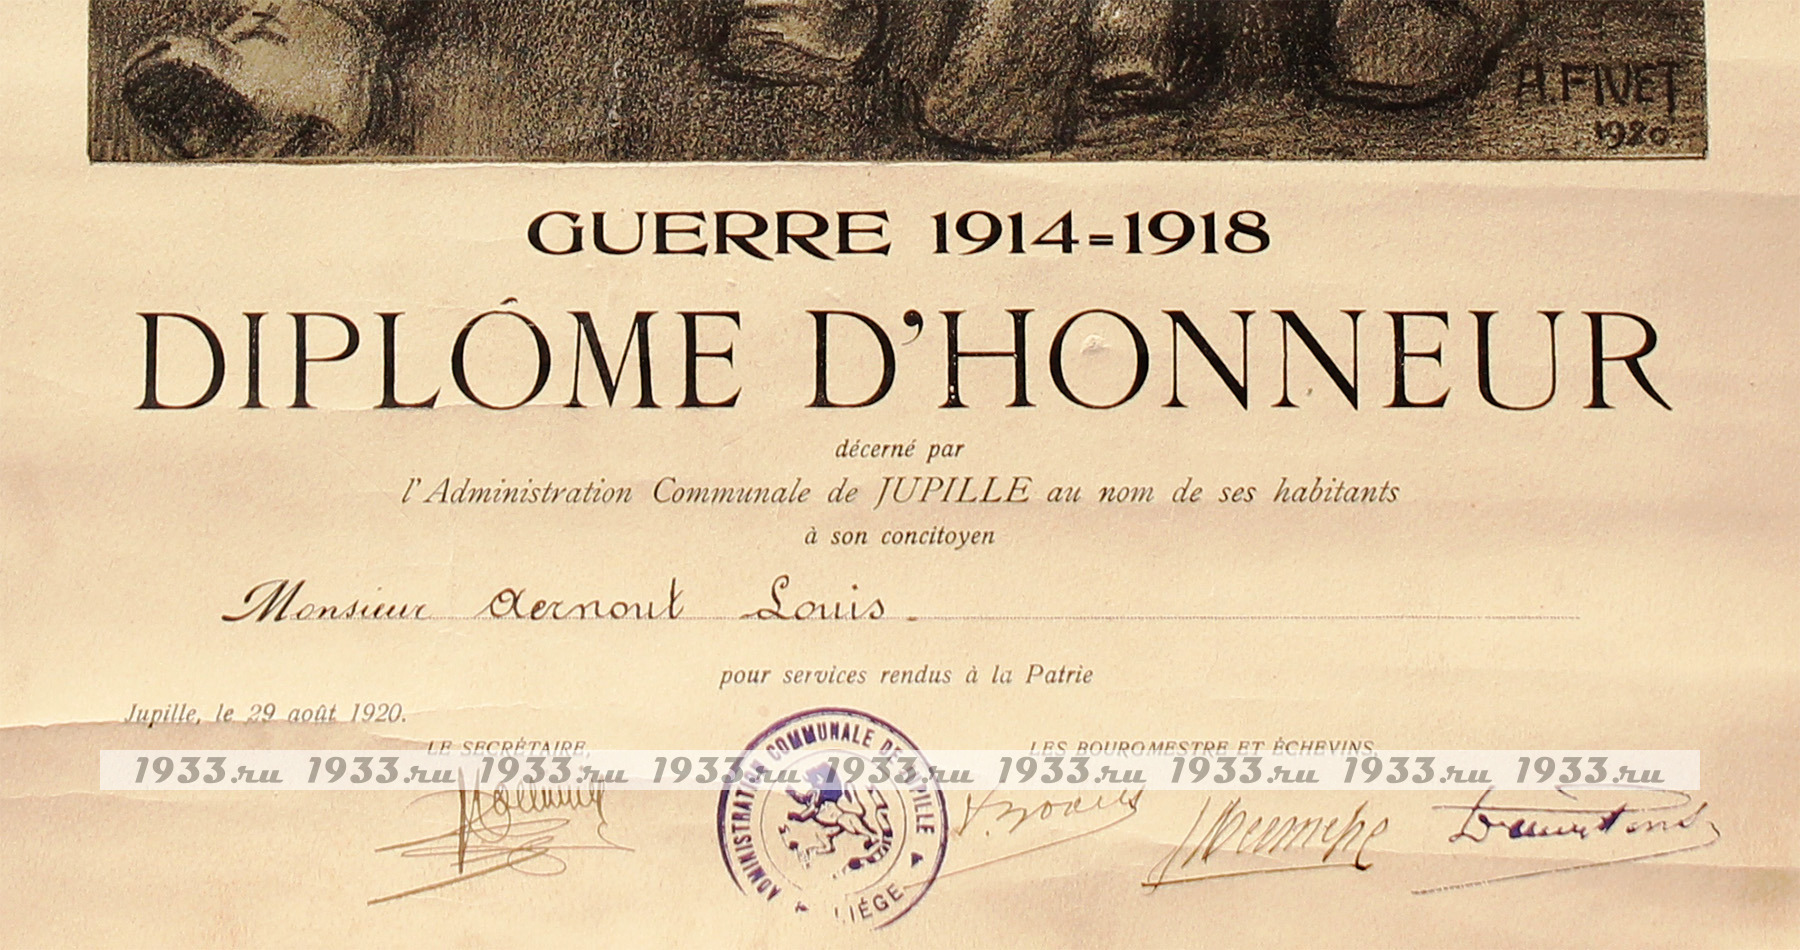 A. FIVET
1920
GUERRE 1914=1918
DIPLÔME D'HONNEUR
décerné par
l'Administration Communale de JUPILLE au nom de ses habitants
à son concitoyen
Monsieur Aernout Louis.
pour services rendus à la Patrie
Jupille, le 29 août 1920.
LE SECRÉTAIRE,
LES BOURGMESTRE ET ÉCHEVINS,
1933.ru 1933.ru 1933.ru 1933.ru 1933.ru 1933.ru 1933.ru 1933.ru 1933.ru
ADMINISTRATION COMMUNALE DE JUPILLE
LIÉGE